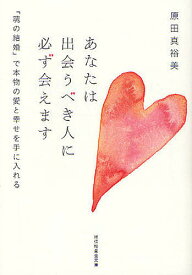 原田真裕美
あなたは
出会うべき人に
必ず会えます
「魂の結婚」で本物の愛と幸せを手に入れる
祥伝社黄金文庫